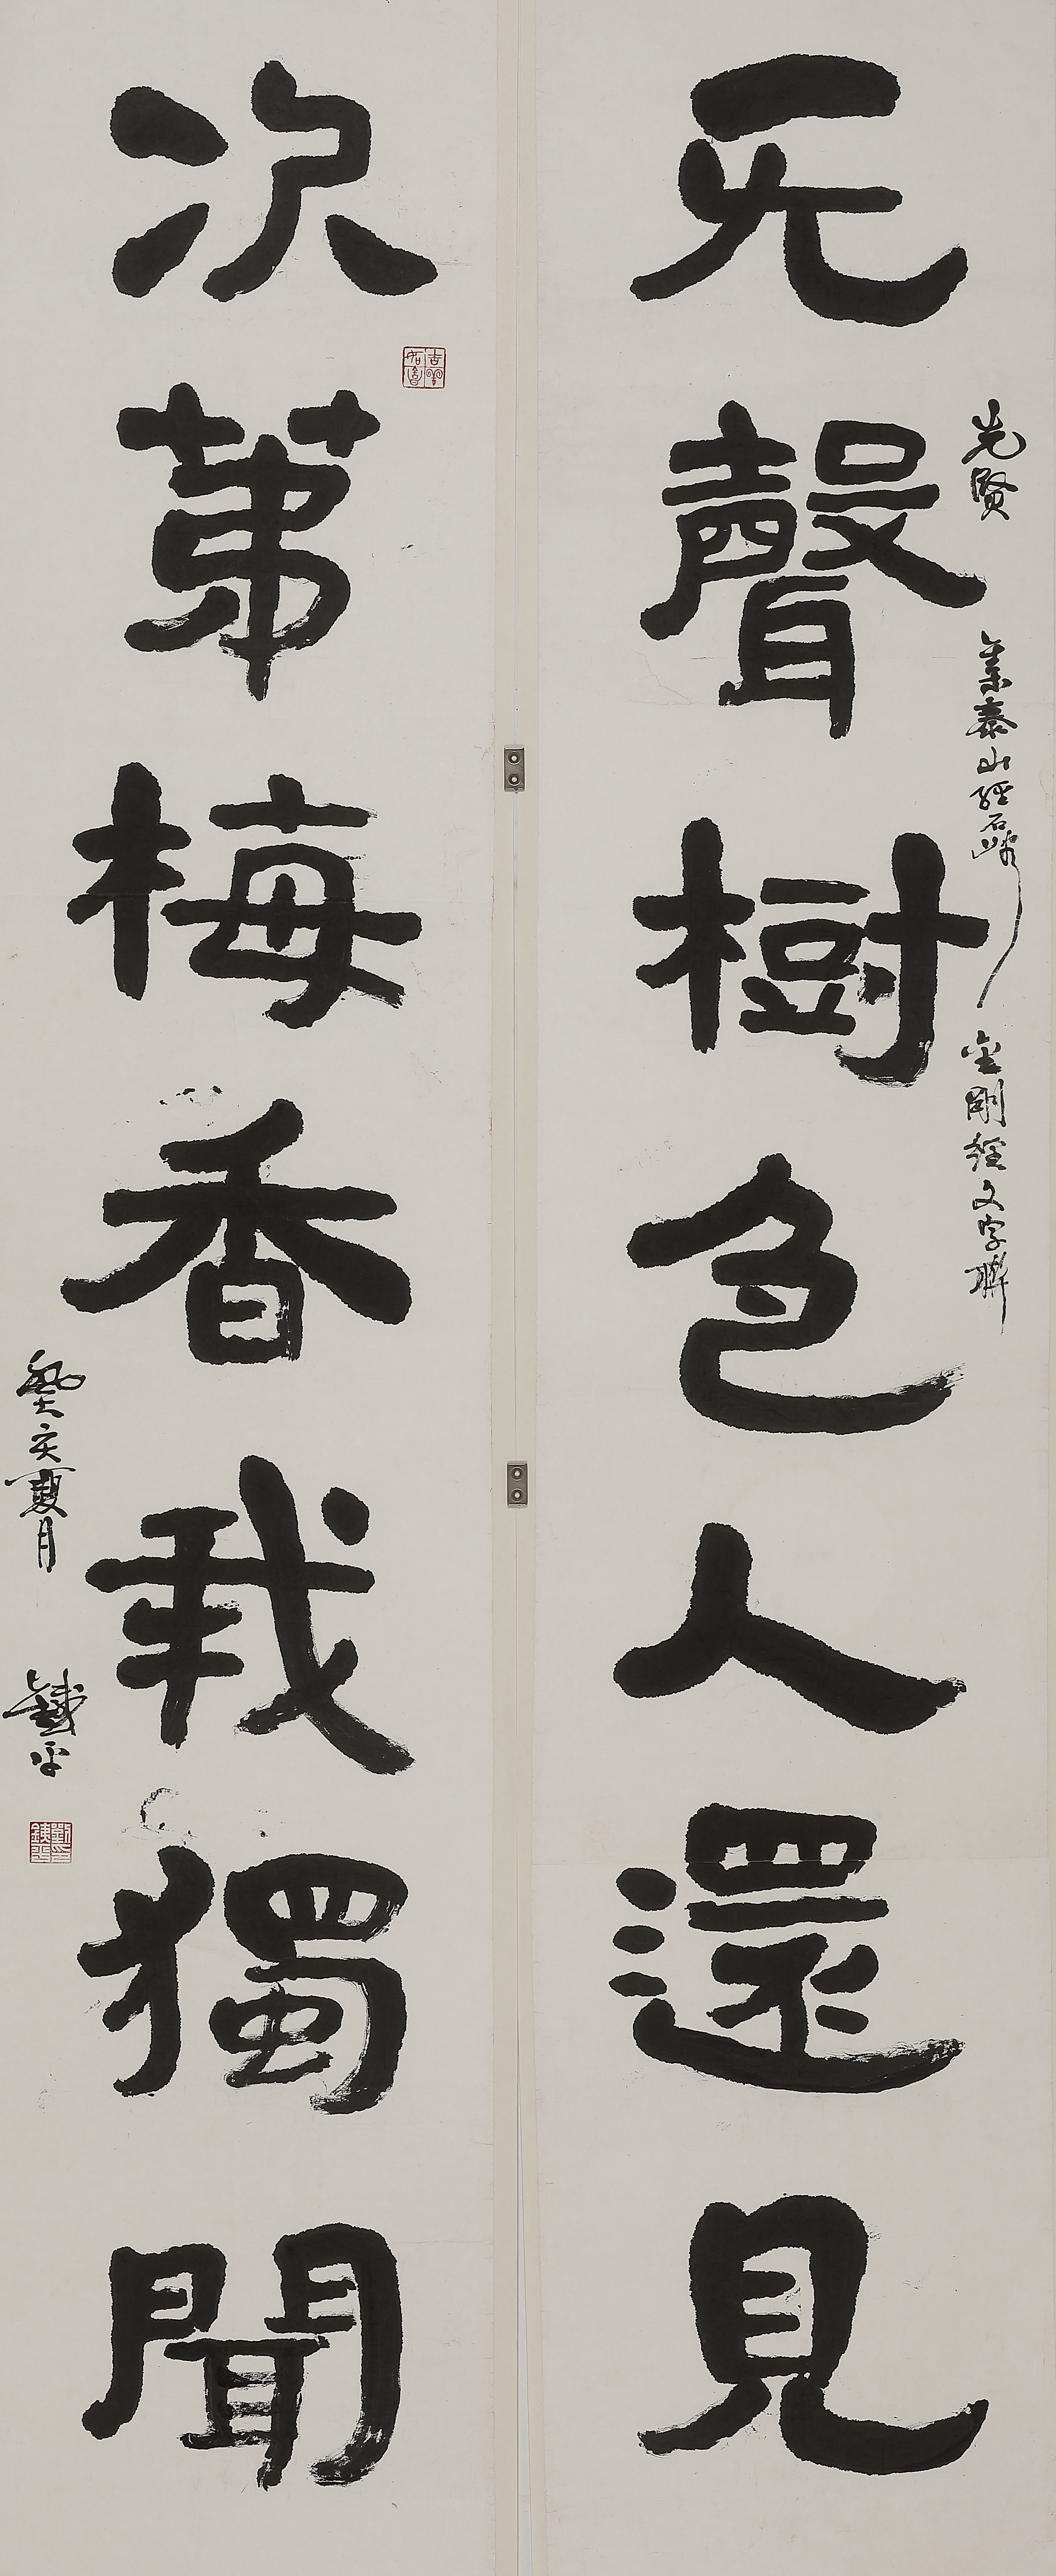 先賢 集泰山經石峪 金剛經文字聯
无聲樹色人還見
次第梅香我獨聞
癸亥夏月 鐵平
吉羽如意